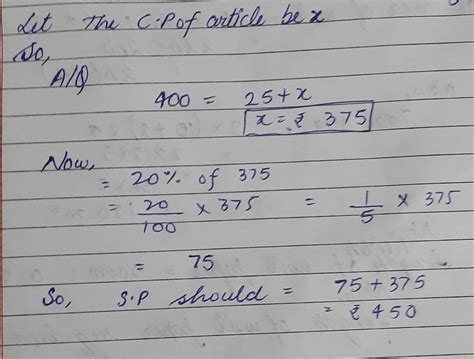 Let The C.P of article be x
So,
A/Q
400 = 25 + x
x = ₹ 375
Now,
= 20% of 375
= 20/100 × 375 = 1/5 × 375
= 75
So, S.P should = 75 + 375
= ₹ 450